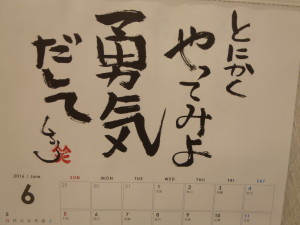 とにかく
やってみよ
勇気
だして
2016 / June
6
SUN
MON
TUE
WED
THU
FRI
SAT
29
30
31
1
2
3
4
5
6
7
8
9
10
11